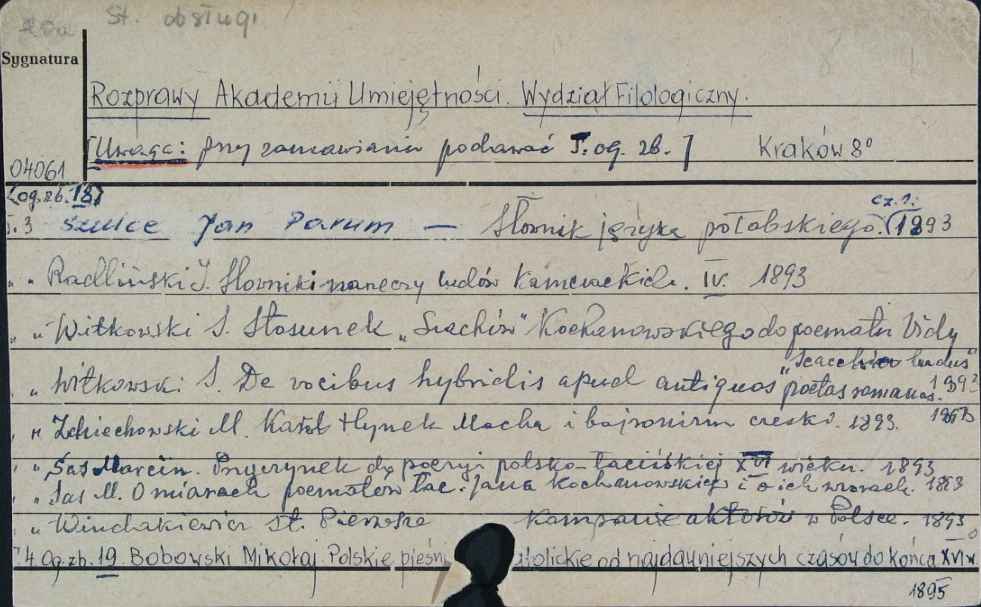 St. obsługi
Sygnatura
Rozprawy Akademii Umiejętności. Wydział Filologiczny.
[Uwaga: przy zamawianiu podawać T. og. zb.] Kraków 8°
04061
[og. zb. 18]
T. 3 Szulce Jan Parum — Słownik języka połabskiego. cz. 1. 1893
" " Radliński I. Słowniki narzeczy ludów kamczackich. IV. 1893
" " Witkowski S. Stosunek „Szachów" Kochanowskiego do poematu Vidy
„Scacchia ludus"
" Witkowski S. De vocibus hybridis apud antiquos poetas romanos. 1892
1893
" " Zdziechowski M. Karol Hynek Macha i bajronizm czeski. 1893.
" " Sas Marcin. Przyczynek do poezyi polsko-łacińskiej XVI wieku. 1893
" " Sas M. O miarach poematów łac. Jana Kochanowskiego i o ich wzorach. 1893
" " Windakiewicz St. Pierwsze kompanie aktorów w Polsce. 1893
T. 4 Og. zb. 19 Bobowski Mikołaj Polskie pieśni katolickie od najdawniejszych czasów do końca XVI w.
1895